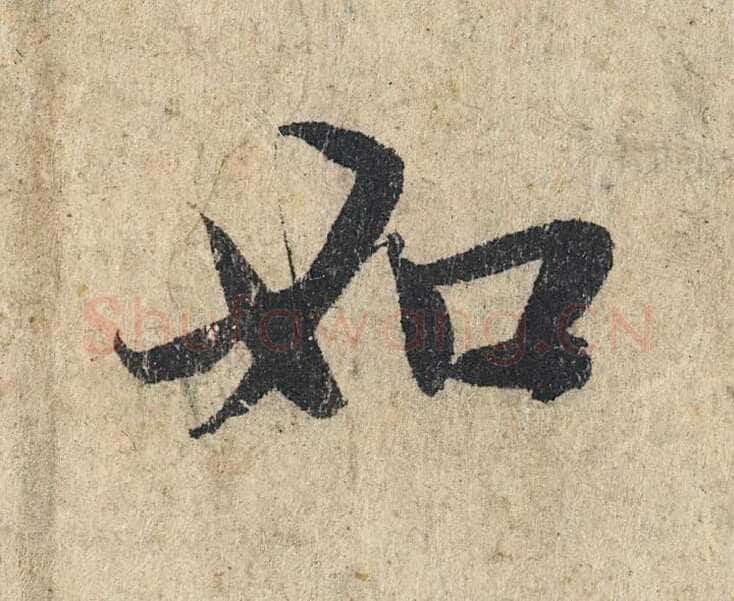 如
Shufawang.CN